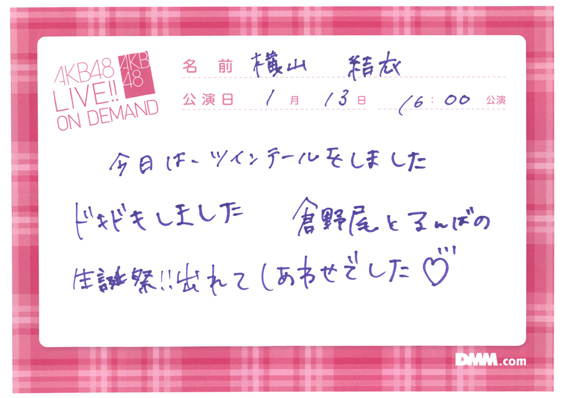 AKB48
LIVE!!
ON DEMAND
AKB
48
名前 横山 結衣
公演日 1月 13日 16:00 公演
今日は、ツインテールをしました
ドキドキしました 倉野尾とるんばの
生誕祭!!出れてしあわせでした♡
DMM.com